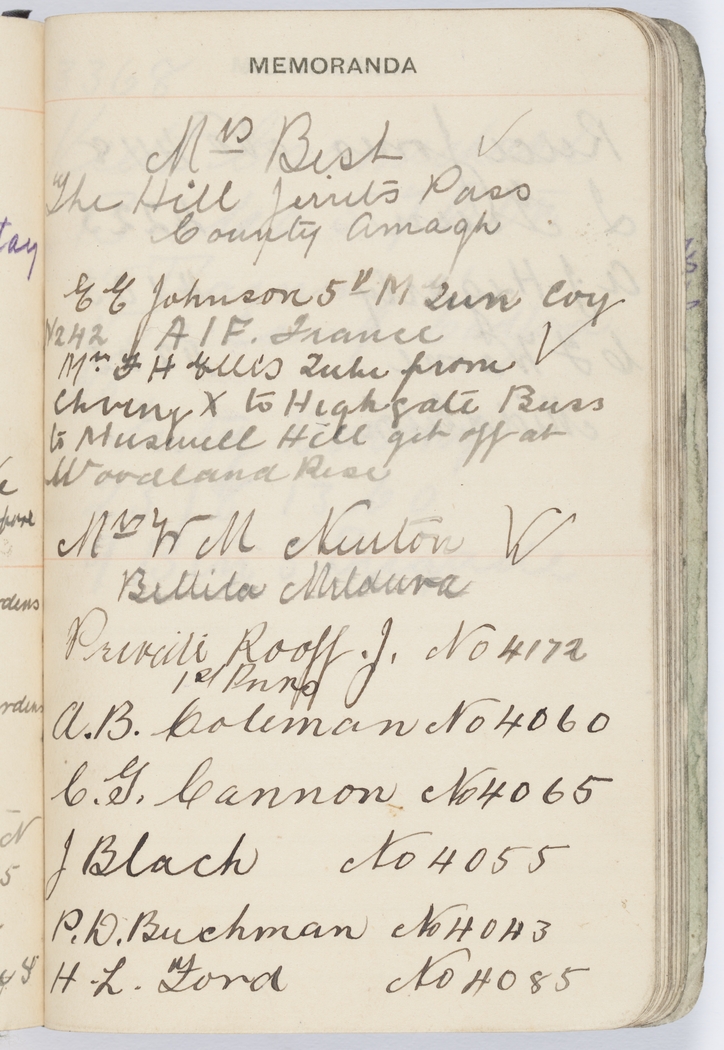 MEMORANDA
Mrs Best
The Hill Jerrits Pass
County Amagh
E E Johnson 5th M Gun Coy
No 242 AIF. France
Mrs F H Ellis Tube from
Chring X to Highgate Buss
to Muswell Hill get off at
Woodland Rise
Mrs W M Newton
Bellita Mildura
Private Rooff. J. No 4172
1st Pnrs
A.B. Coleman No 4060
C.G. Cannon No 4065
J Blach No 4055
P.D. Buchman No 4043
H.L. Ford No 4085